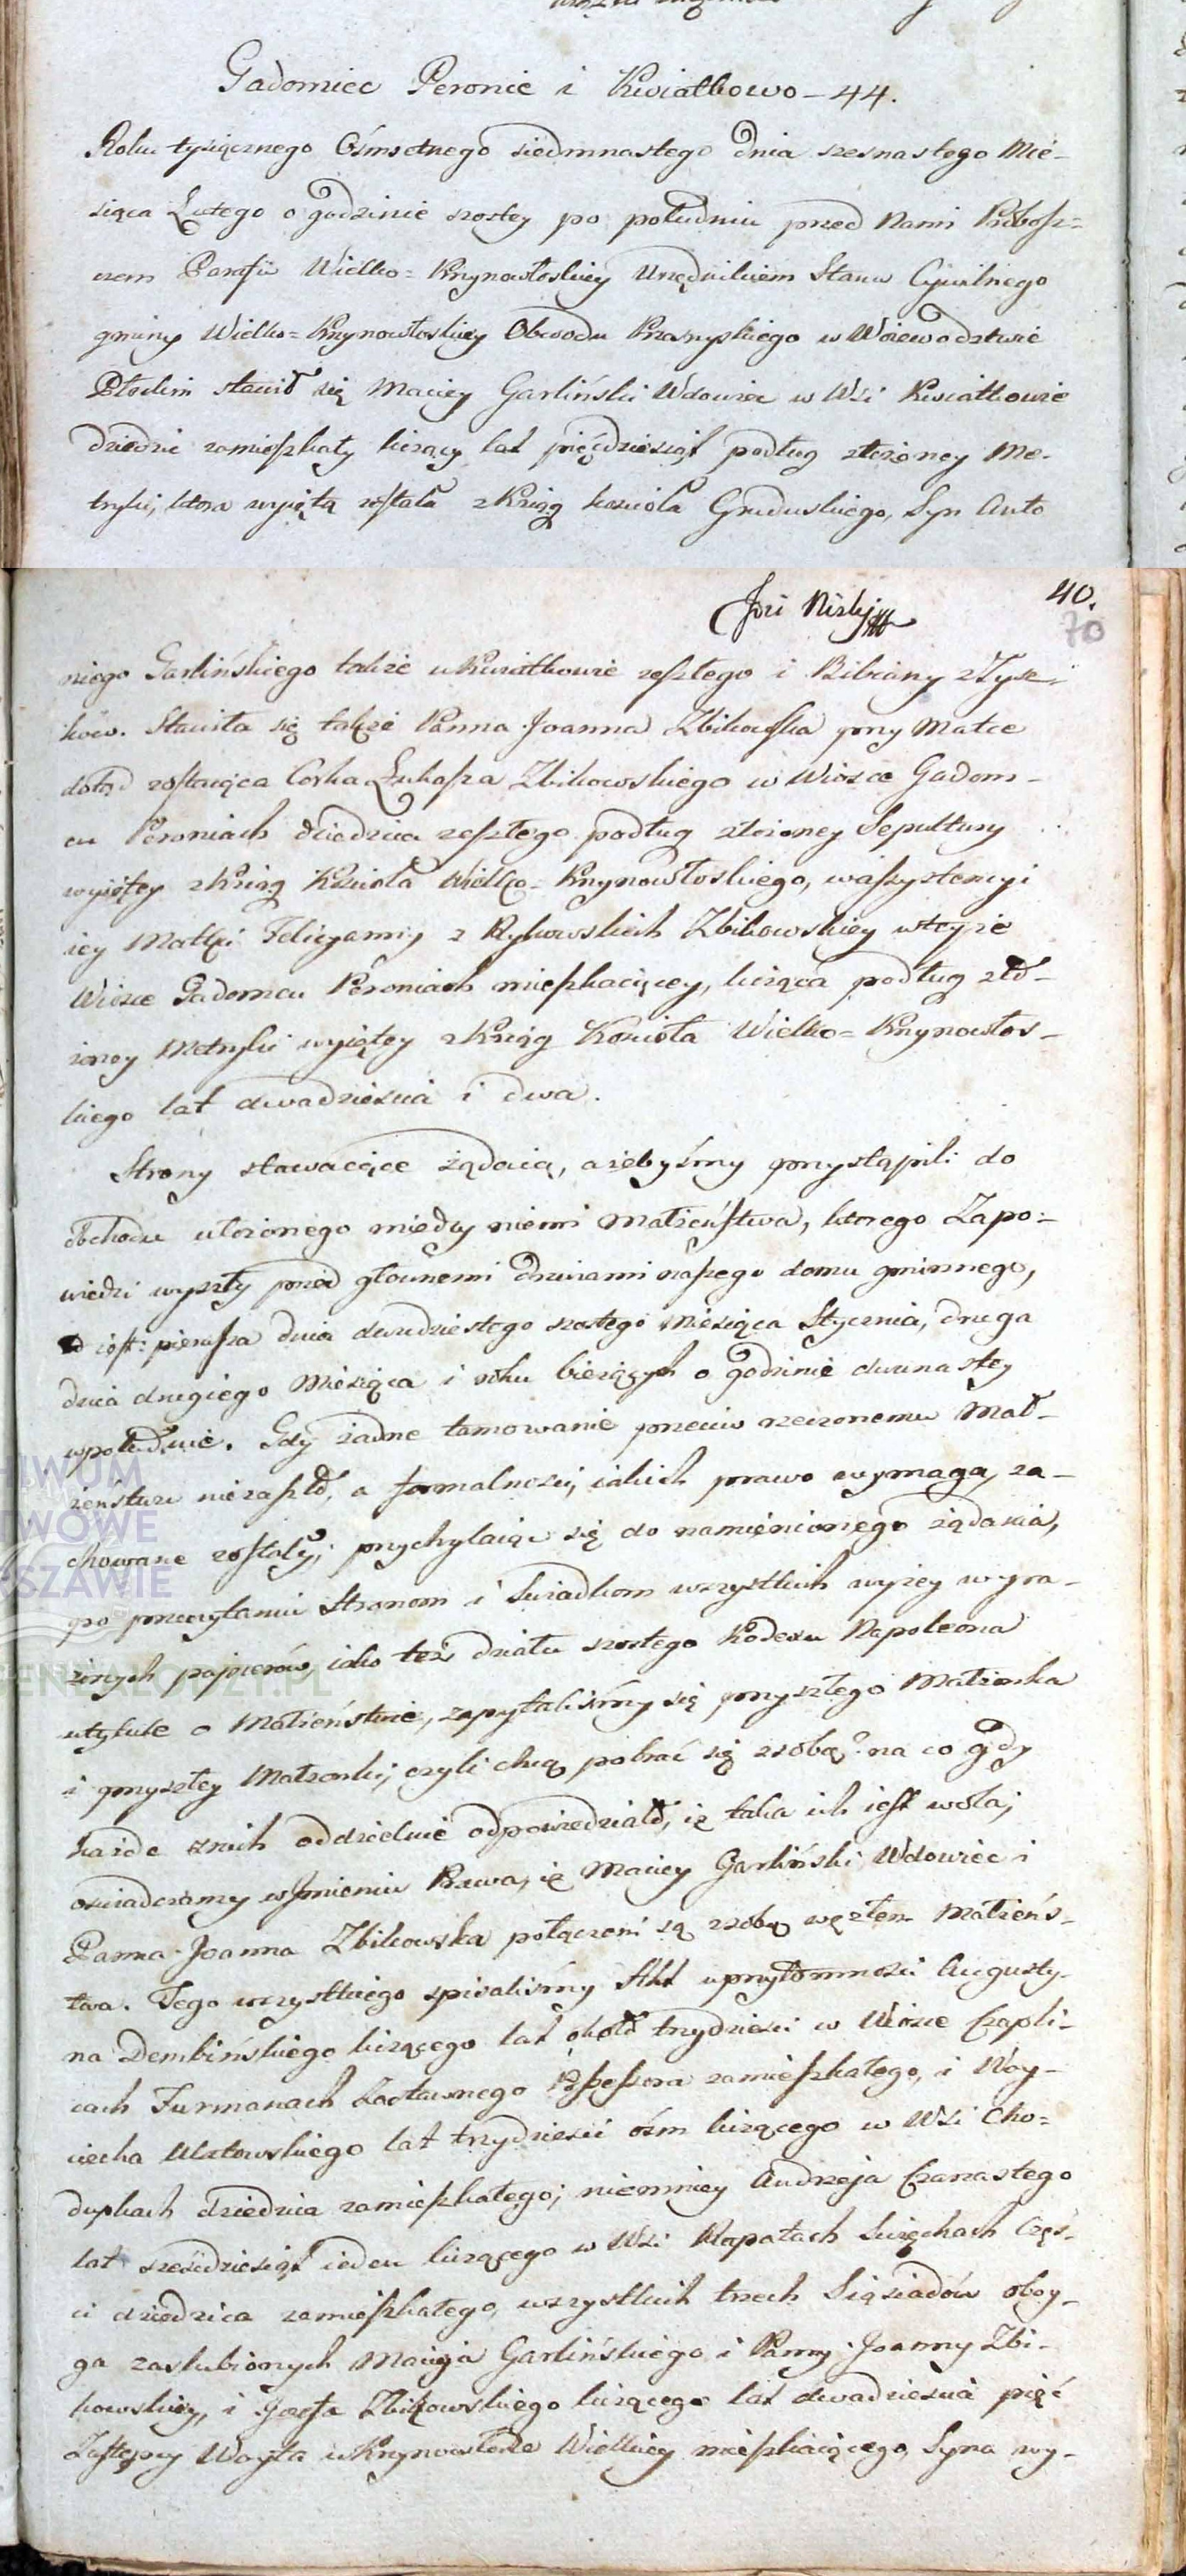 Gadomiec Peronie i Kwiatkowo – 44.
Roku tysiącznego Ośmsetnego siedmnastego dnia szesnastego Mie-
siąca Lutego o godzinie szostey po południu przed Nami Probosz-
czem Parafii Wielko = Krzynowłoskiey Urzędnikiem Stanu Cywilnego
gminy Wielko = Krzynowłoskiey Obwodu Przasnyskiego w Woiewodztwie
Płockim stawił się Maciey Garliński Wdowiec w Wsi Kwiatkowie
dziedzic zamieszkały liczący lat pięćdziesiąt podług złożoney Me-
tryki, ktora wyięta została z Ksiąg kościoła Gruduskiego, Syn Anto
40.
70
niego Garlińskiego także w Kwiatkowie zeszłego i Bibiany z Łyse-
ków. Stawiła się także Panna Joanna Zbikowska przy Matce
dotąd zostaiąca Corka Łukasza Zbikowskiego w Wiosce Gadom-
cu Peroniach dziedzica zeszłego podług złożoney Sepultury
wyiętey z Ksiąg Kościoła Wielko = Krzynowłoskiego, w assystencyi
iey Matki Felicyanny z Rykowskich Zbikowskiey w teyże
Wiosce Gadomcu Peroniach mieszkaiącey, licząca podług zło-
żoney Metryki wyiętey z Ksiąg Kościoła Wielko = Krzynowłos-
kiego lat dwadzieścia i dwa.
Strony stawaiące żądaią, ażebyśmy przystąpili do
obchodu ułożonego między niemi Małżeństwa, ktorego Zapo-
wiedzi wyszły przed głownemi drzwiami naszego domu gminnego,
to iest: pierwsza dnia dwudziestego szostego Miesiąca Stycznia, druga
dnia drugiego Miesiąca i roku bieżących o godzinie dwunastey
w południe. Gdy żadne tamowanie przeciw rzeczonemu Mał-
żeństwu nie zaszło, a formalności, iakich prawo wymaga, za-
chowane zostały; przychylaiąc się do namienionego żądania,
po przeczytaniu Stronom i Swiadkom wszystkich wyżey wyra-
żonych papierów, iako też działu szostego Kodexu Napoleona
w tytule o Małżeństwie, zapytaliśmy się przyszłego Małżonka
i przyszłey Małżonki, czyli chcą pobrać się z sobą? na co gdy
każde z nich oddzielnie odpowiedziało, iż taka ich iest wola;
oświadczamy w Jmieniu Prawa, iż Maciey Garliński Wdowiec i
Panna Joanna Zbikowska połączeni są z sobą węzłem Małżeńs-
twa. Tego wszystkiego spisaliśmy Akt w przytomności Augusty-
na Dembińskiego liczącego lat około trzydzieści w Wiosce Czapli-
cach Furmanach Zastawnego Possessora zamieszkałego, i Woy-
ciecha Ulatowskiego lat trzydzieści ośm liczącego w Wsi Cho-
dupkach dziedzica zamieszkałego; niemniey Andrzeja Czarzastego
lat sześćdziesiąt ieden liczącego w Wsi Rapatach Sulęchach Częś-
ci dziedzica zamieszkałego, wszystkich trzech Sąsiadów oboy-
ga zaslubionych Macieja Garlińskiego i Panny Joanny Zbi-
kowskiey, i Jozefa Zbikowskiego liczącego lat dwadzieścia pięć
Zastępcy Woyta w Krzynowłodze Wielkiey mieszkaiącego, Syna wy-